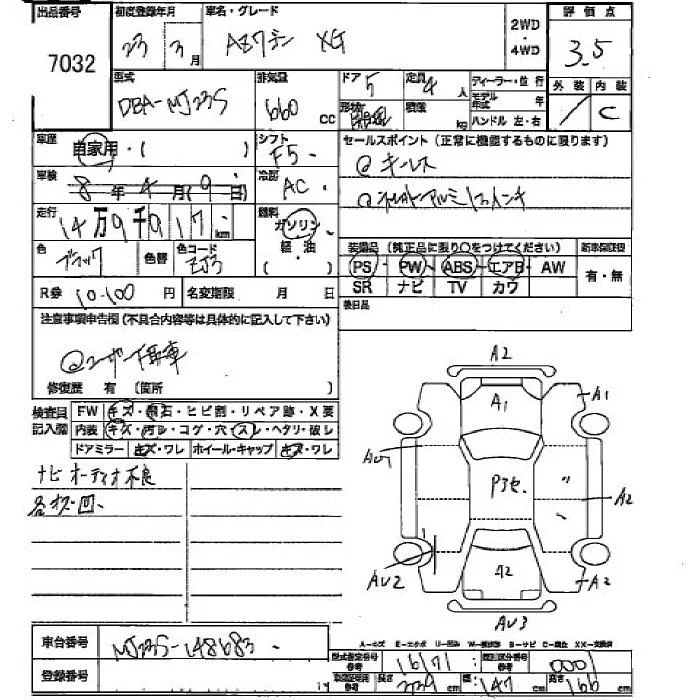 出品番号 7032
初度登録年月 23年 3月
車名・グレード AZワゴン XG
2WD・4WD
評価点 3.5
外装 内装 C
型式 DBA-MJ23S
排気量 660 cc
ドア 5
定員 4人
形状
積載 kg
ディーラー・並行
モデル年式 年
ハンドル 左・右
車歴 自家用・( )
シフト F5
セールスポイント (正常に機能するものに限ります)
@キーレス
車検 8年 4月( 日)
冷房 AC
走行 14万9千917 km
燃料 ガソリン・軽油・( )
色 ブラック
色替
色コード ZJ3
装備品 (純正品に限り○をつけてください)
新車保証書 有・無
PS・PW・ABS・エアB・AW
SR ナビ TV カワ
R券 10-100 円
名変期限 月 日
後日品
注意事項申告欄 (不具合内容等は具体的に記入して下さい)
@ユーザー下取車
修復歴 有 (箇所 )
検査員記入欄
FW キズ・飛石・ヒビ割・リペア跡・X要
内装 キズ・汚レ・コゲ・穴・スレ・ヘタリ・破レ
ドアミラー キズ・ワレ ホイール・キャップ キズ・ワレ
ナビオーディオ不良
各キズ・凹
A2
A1
A1
AU1
P3セ
A2
AU2
A2
A2
AU3
車台番号 MJ23S-148683
登録番号
A−キズ E−エクボ U−凹み W−補修跡 S−サビ C−腐蝕 XX−交換済
型式指定番号 参考 16171
類別区分番号 参考 0001
参考 長さ 339 cm 幅 147 cm 高さ 166 cm